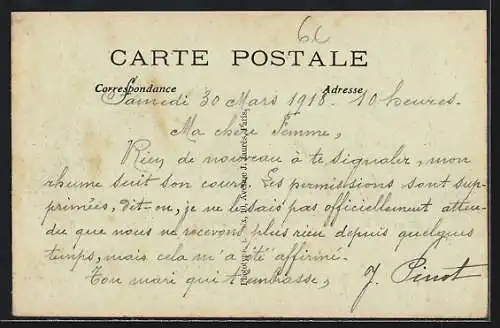 6c
CARTE POSTALE
Correspondance Adresse
Samedi 30 Mars 1918 - 10 heures.
Ma chère Femme,
Rien de nouveau à te signaler, mon
rhume suit son cours. Les permissions sont sup-
primées, dit-on, je ne le sais pas officiellement atten-
du que nous ne recevons plus rien depuis quelques
temps, mais cela m'a été affirmé.
Ton mari qui t'embrasse,
J. Pinot
Avenue J. Jaurès, Paris.